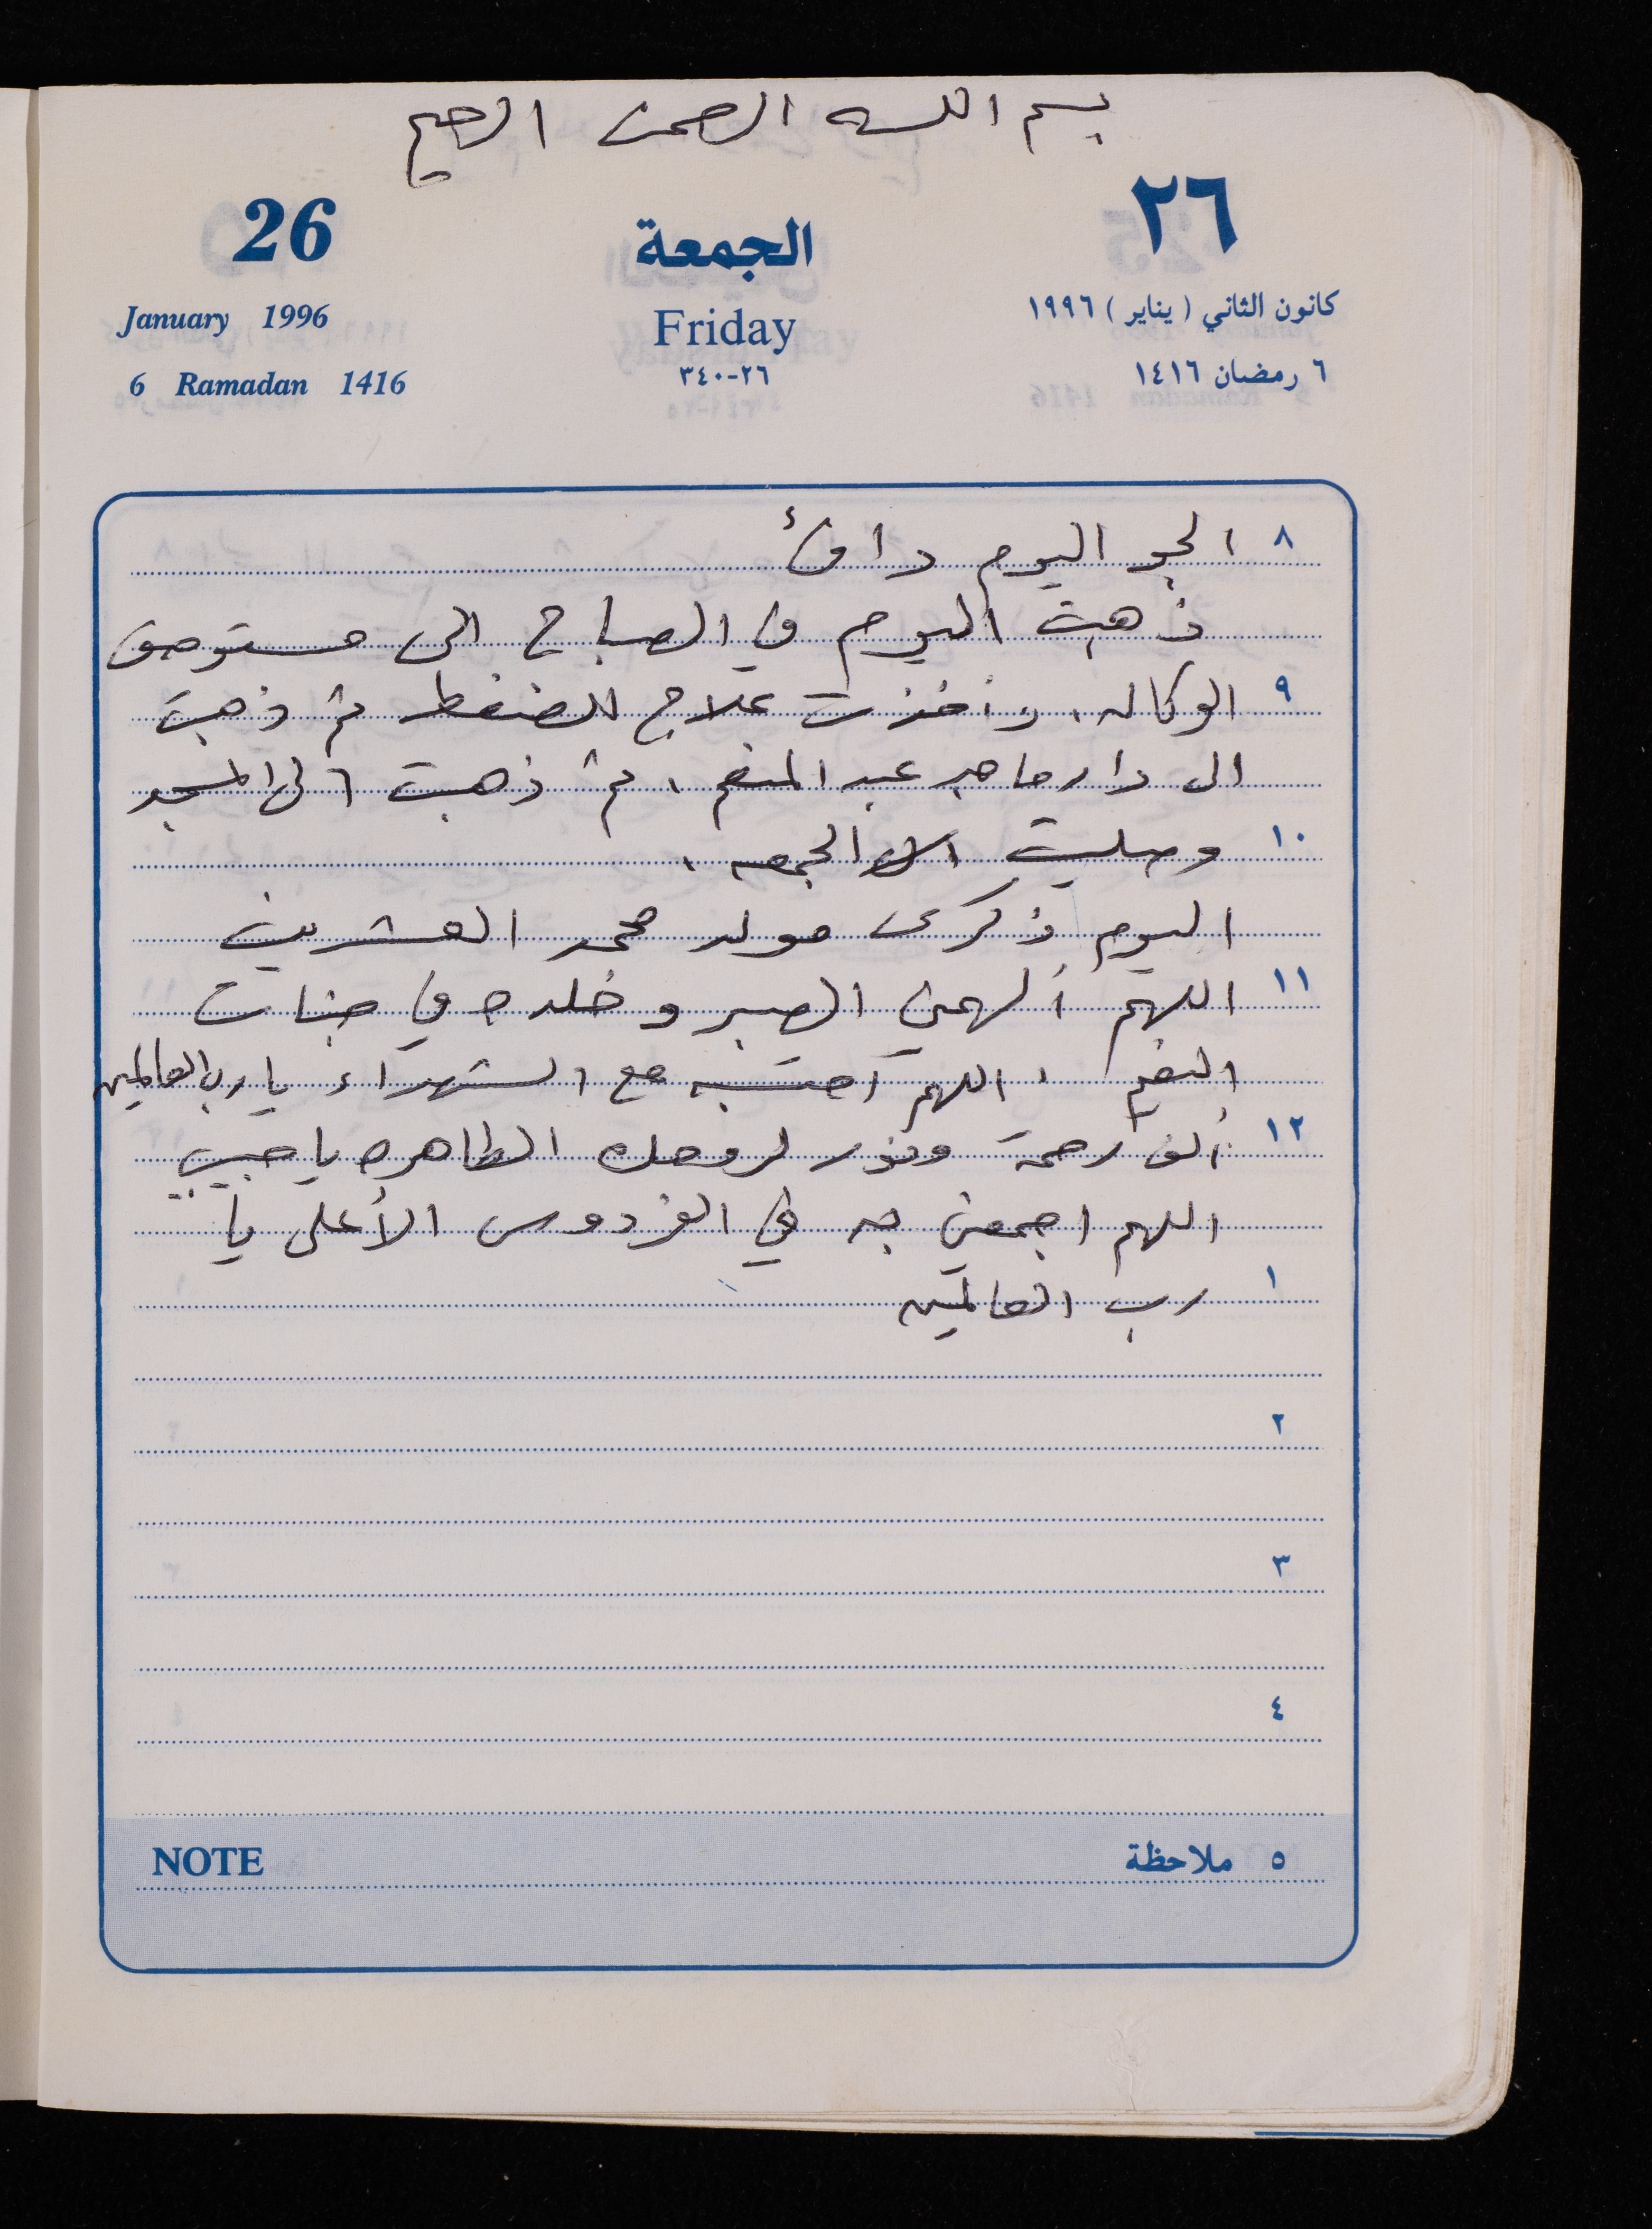 بسم الله الرحمن الرحيم
26 الجمعة ٢٦
January 1996 Friday كانون الثاني (يناير) ١٩٩٦
6 Ramadan 1416 ٢٦-٣٤٠ ٦ رمضان ١٤١٦
٨ الجو اليوم دافئ
ذهبت اليوم في الصباح الى مستوصف
٩ الوكاله، وأخذت علاج للضغط ثم ذهبت
الى دار ماجد عبد المنعم، ثم ذهبت الى المسجد
١٠ وصليت الجمعه.
اليوم ذكرى مولد محمد العشرين
١١ اللهم ألهمني الصبر وخلده في جنات
النعيم، اللهم احتسبه مع الشهداء يا رب العالمين
١٢ ألف رحمة ونور لروحك الطاهره يا حبيبي
اللهم اجمعني به في الفردوس الأعلى يا
١ رب العالمين
٢
٣
٤
NOTE ٥ ملاحظة